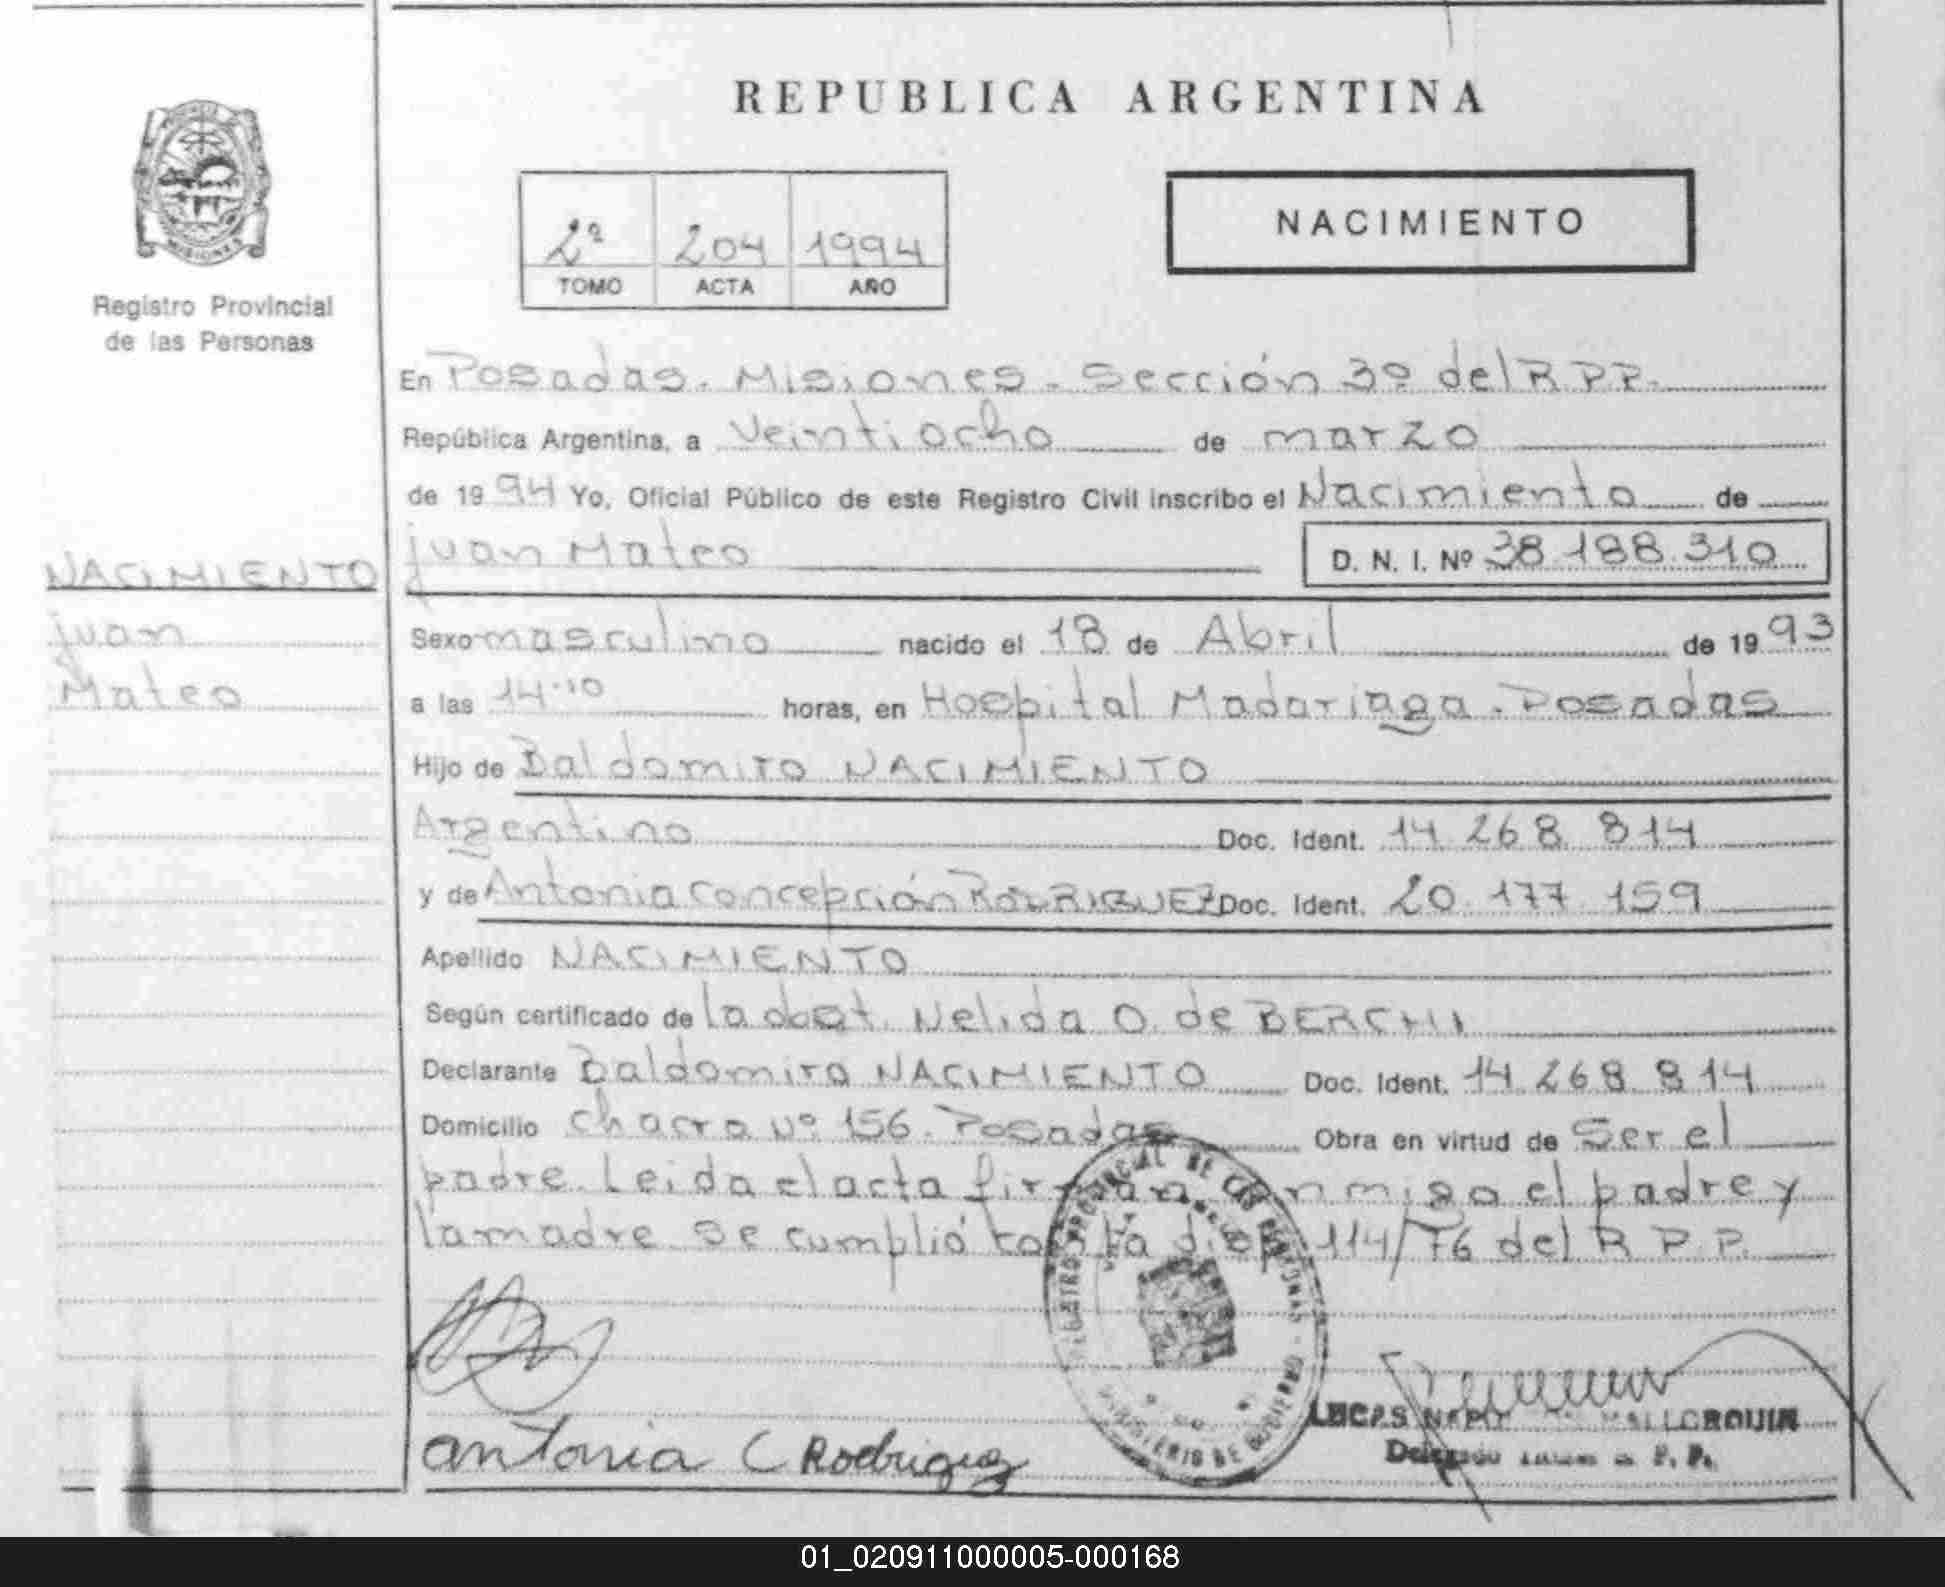 REPUBLICA ARGENTINA
NACIMIENTO
2ª 204 1994
TOMO ACTA AÑO
MISIONES
Registro Provincial
de las Personas
En Posadas. Misiones. Sección 3º del R.P.P.
República Argentina, a Veintiocho de marzo
de 1994 Yo, Oficial Público de este Registro Civil inscribo el Nacimiento de
juan Mateo D. N. I. Nº 38.188.310
NACIMIENTO
juan
Mateo
Sexo masculino nacido el 18 de Abril de 1993
a las 14.10 horas, en Hospital Madariaga. Posadas
Hijo de Baldomiro NACIMIENTO
Argentino Doc. Ident. 14.268.814
y de Antonia Concepción RODRIGUEZ Doc. Ident. 20.177.159
Apellido NACIMIENTO
Según certificado de la doct. Nelida O. de BERCHI
Declarante Baldomiro NACIMIENTO Doc. Ident. 14.268.814
Domicilio chacra Nº 156. Posadas Obra en virtud de Ser el
padre. Leida el acta firman conmigo el padre y
la madre. Se cumplió 114/76 del R.P.P.
REGISTRO PROVINCIAL DE LAS PERSONAS
MINISTERIO DE GOBIERNO
antonia C Rodriguez
LUCAS MALLORQUIN
Delegado
01_020911000005-000168